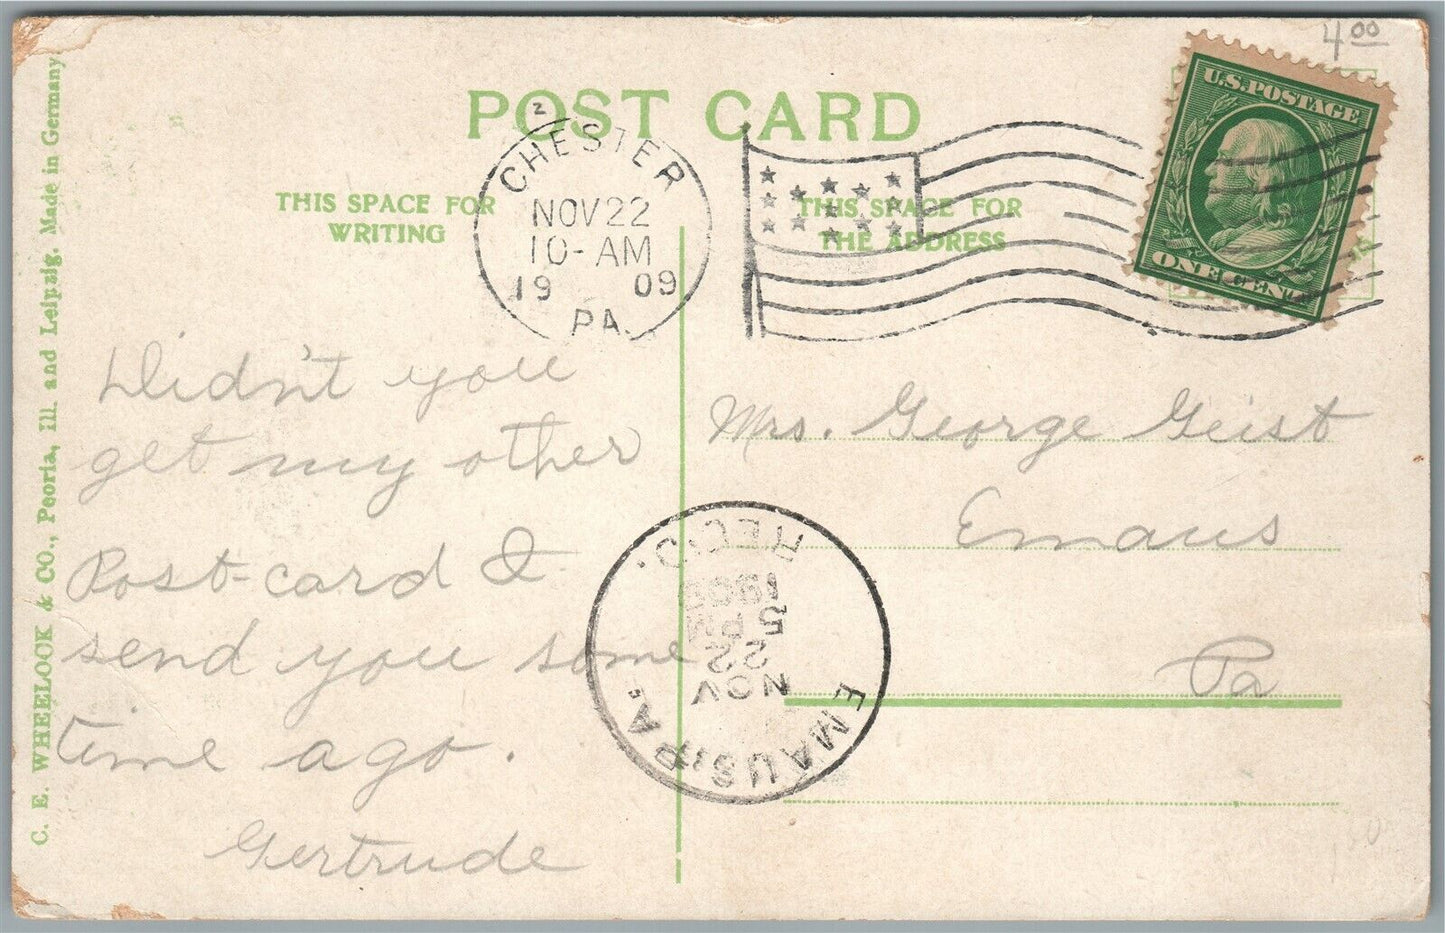 4 00
POST CARD
U.S. POSTAGE
ONE CENT
2
CHESTER
NOV 22
10-AM
19 09
PA.
THIS SPACE FOR
WRITING
THIS SPACE FOR
THE ADDRESS
C. E. WHEELOCK & CO., Peoria, Ill. and Leipzig. Made in Germany
Didn't you
get my other
Post-card &
send you some
time ago.
Gertrude
Mrs. George Geist
Emaus
Pa
EMAUS, PA.
NOV
22
5 PM
REC'D.